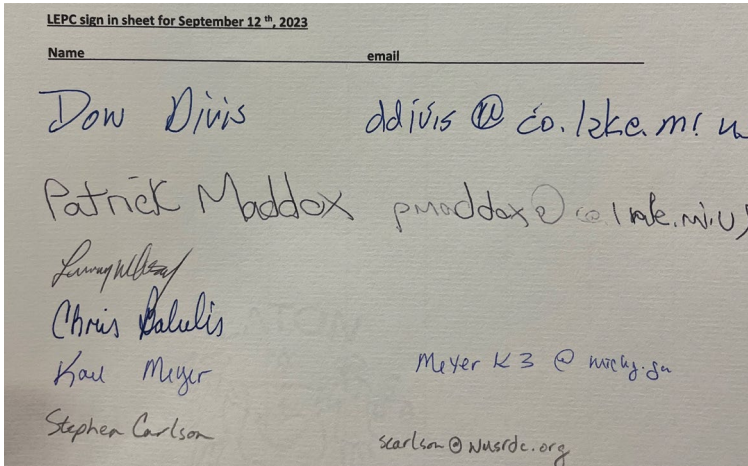 LEPC sign in sheet for September 12 th, 2023
Name email
Don Divis ddivis @ co.lake.mi.u
Patrick Maddox pmaddox@co.lake.mi.us
Chris Balulis
Karl Meyer Meyer K 3 @
Stephen Carlson scarlson@wusrdc.org